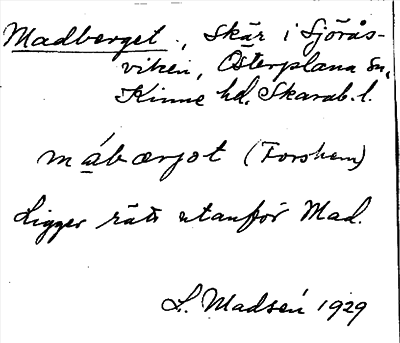 Madberget., skär i Sjörås-
viken, Österplana sn,
Kinne hd, Skarab. l.
mábærjot (Forshem)
Ligger rätt utanför Mad.
L. Madsén 1929